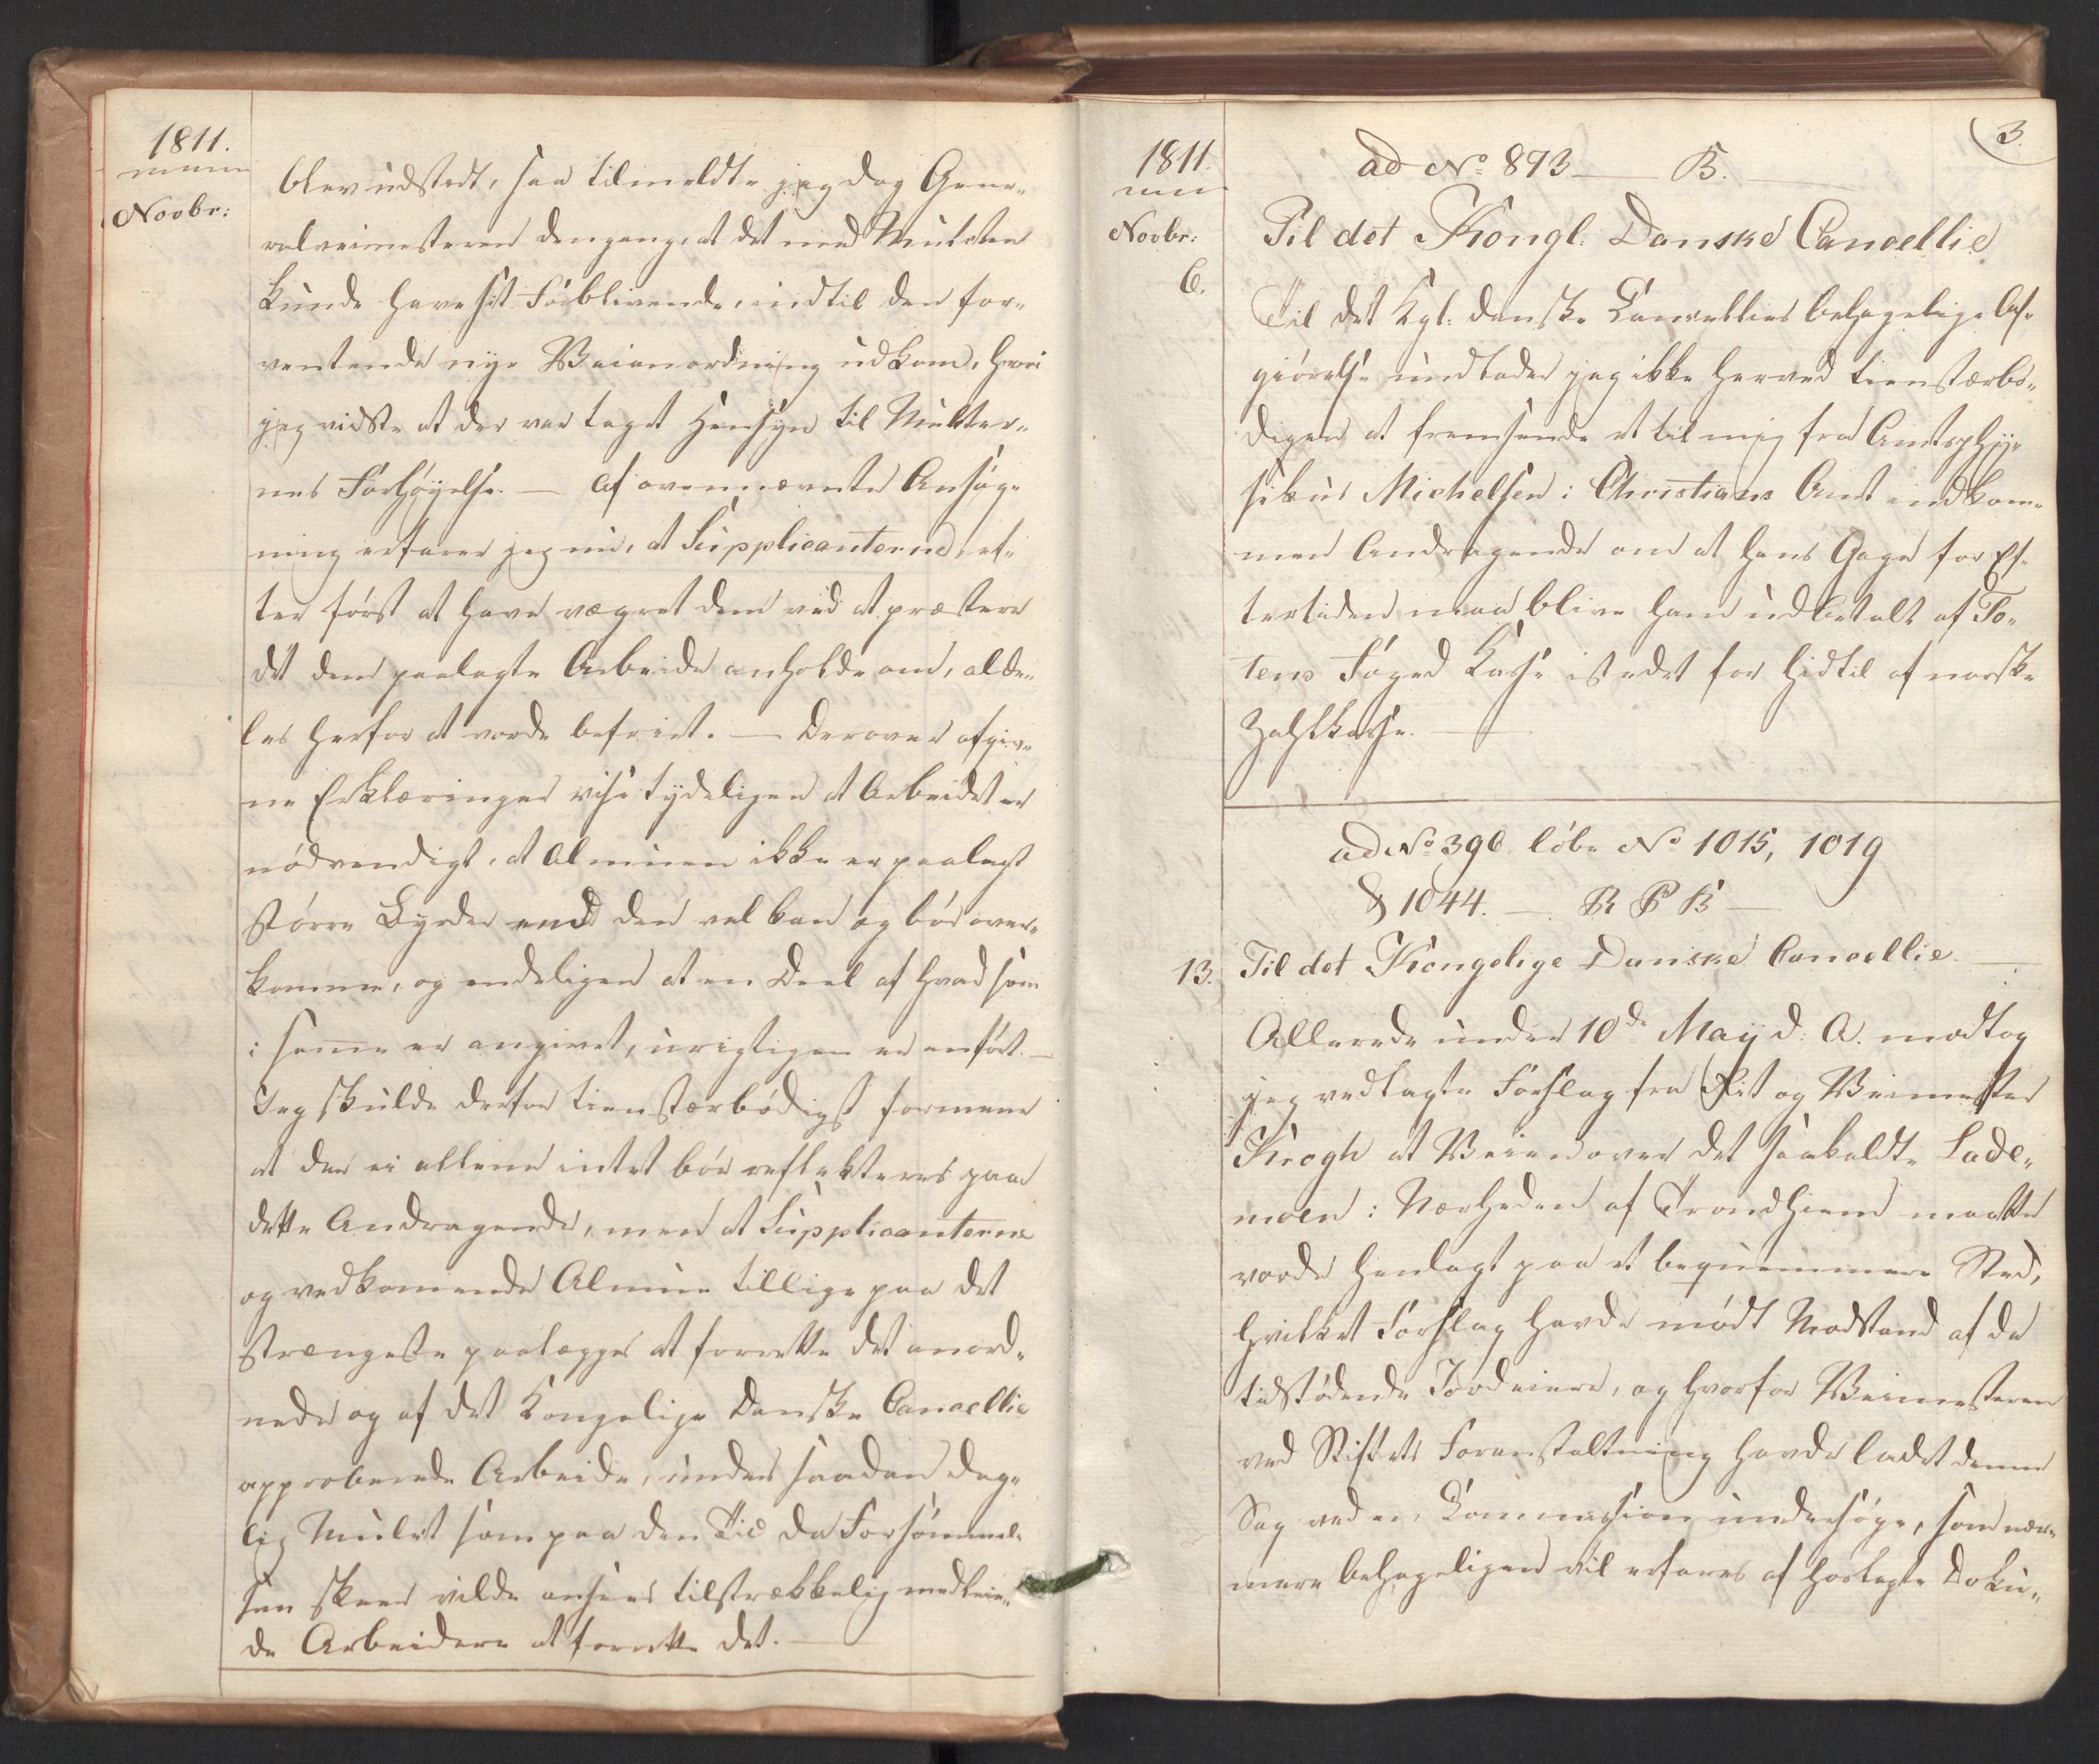 1811.
Novbr:
blev udstedt, saa tilmeldte jeg dog Gene-
ralveimesteren dengang, at det med Mulcten
kunde have sit Forblivende, indtil den for-
ventende nye Veianordning udkom, hvori
jeg vidste at der var taget Hensyn til Mulkter-
nes Forhøyelse. — Af ovennævnte Ansøg-
ning erfarer jeg nu, at Supplicanterne, ef-
ter først at have vægret dem ved at præstere
det dem paalagte Arbeide anholde om, alde-
les herfor at vorde befriet. — Derover afgiv-
ne Erklæringer vise tydeligen at Arbeidet er
nødvendigt, at Almuen ikke er paalagt
større Byrder end den vel kan og bør over-
komme, og endeligen at en Deel af hvad som
i samme er angivet, urigtigen er anført. —
Jeg skulde derfor tienstærbødigst formene
at der ei allene intet bør reflekteres paa
dette Andragende, men at Supplicanterne
og vedkommende Almue tillige paa det
strængeste paalægges at forrette det anord-
nede og af det Kongelige Danske Cancellie
approberede Arbeide, under saadan dag-
lig Mulct som paa den Tid da Forsømmel-
sen skeer vilde ansees tilstrækkelig med leie-
de Arbeidere at forrette det. —
3.
1811.
Novbr:
6.
ad No. 893 — B. —
Til det Kongl: Danske Cancellie
Til det Kgl: danske Cancellies behagelige Af-
giørelse undlader jeg ikke herved tienstærbø-
digen at fremsende et til mig fra Amtsphy-
sikus Michelsen i Christians Amt indkom-
men Andragende om at hans Gage for Ef-
tertiden maa blive ham udbetalt af To-
tens Foged Kasse istedet for hidtil af norske
Zahlkasse. —
ad No 396 løbe No 1015, 1019
& 1044. — R P B —
13. Til det Kongelige Danske Cancellie. —
Allerede under 10de Maij d: A. modtog
jeg vedlagte Forslag fra Rit og Veimester
Krogh at Veien over det saakaldte Lade-
moen i Nærheden af Trondhiem maatte
vorde henlagt paa et beqvemmere Sted,
hvilket Forslag havde mødt Modstand af de
tilstødende Jordeiere, og hvorfor Veimesteren
ved Stiftets Foranstaltning havde ladet denne
Sag ved en Commission undersøge, som nær-
mere behageligen vil erfares af hoslagte Doku-